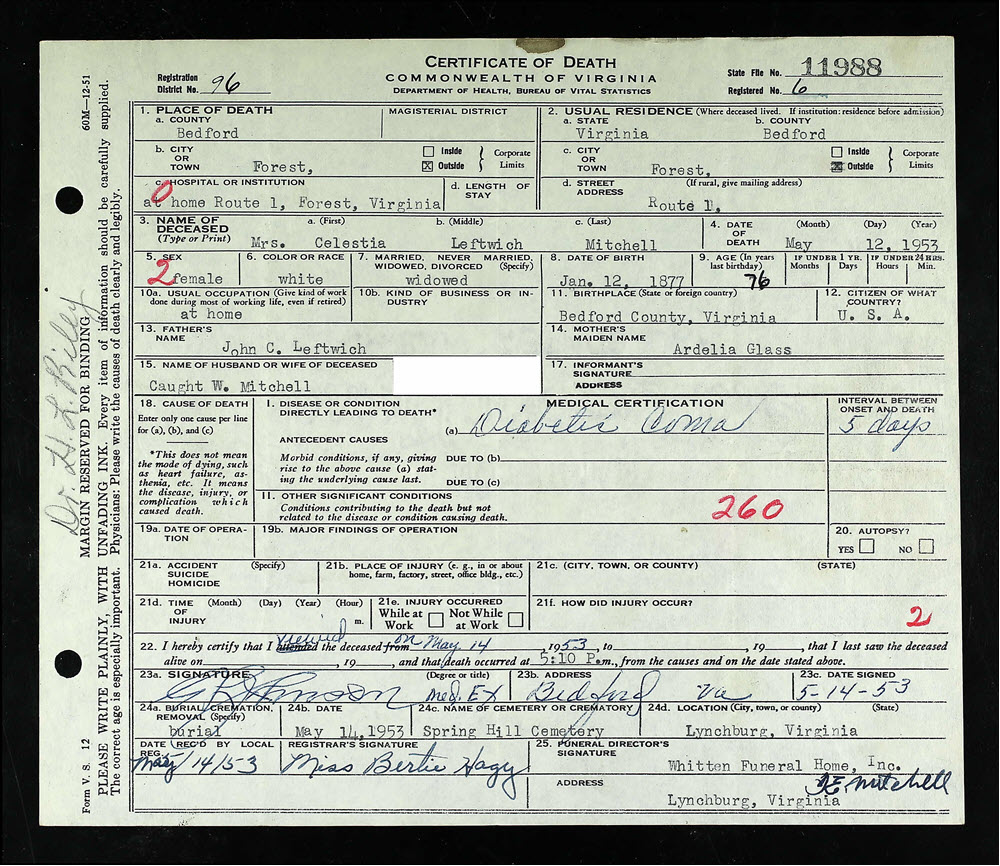 CERTIFICATE OF DEATH
COMMONWEALTH OF VIRGINIA
DEPARTMENT OF HEALTH, BUREAU OF VITAL STATISTICS
Registration District No. 96
State File No. 11988
Registered No. 6
1. PLACE OF DEATH
a. COUNTY
Bedford
MAGISTERIAL DISTRICT
2. USUAL RESIDENCE (Where deceased lived. If institution: residence before admission)
a. STATE
Virginia
b. COUNTY
Bedford
b. CITY OR TOWN
Forest,
Inside
Outside
Corporate Limits
c. CITY OR TOWN
Forest,
Inside
Outside
Corporate Limits
c. HOSPITAL OR INSTITUTION
0
at home Route 1, Forest, Virginia
d. LENGTH OF STAY
d. STREET ADDRESS
(If rural, give mailing address)
Route 1,
3. NAME OF DECEASED
(Type or Print)
a. (First)
b. (Middle)
c. (Last)
Mrs. Celestia Leftwich Mitchell
4. DATE OF DEATH
(Month) (Day) (Year)
May 12, 1953
5. SEX
2
female
6. COLOR OR RACE
white
7. MARRIED, NEVER MARRIED, WIDOWED, DIVORCED (Specify)
widowed
8. DATE OF BIRTH
Jan. 12, 1877
9. AGE (In years last birthday)
76
IF UNDER 1 YR.
Months Days
IF UNDER 24 HRS.
Hours Min.
10a. USUAL OCCUPATION (Give kind of work done during most of working life, even if retired)
at home
10b. KIND OF BUSINESS OR INDUSTRY
11. BIRTHPLACE (State or foreign country)
Bedford County, Virginia
12. CITIZEN OF WHAT COUNTRY?
U. S. A.
13. FATHER'S NAME
John C. Leftwich
14. MOTHER'S MAIDEN NAME
Ardelia Glass
15. NAME OF HUSBAND OR WIFE OF DECEASED
Caught W. Mitchell
17. INFORMANT'S SIGNATURE
ADDRESS
18. CAUSE OF DEATH
Enter only one cause per line for (a), (b), and (c)
*This does not mean the mode of dying, such as heart failure, asthenia, etc. It means the disease, injury, or complication which caused death.
MEDICAL CERTIFICATION
I. DISEASE OR CONDITION DIRECTLY LEADING TO DEATH*
(a) Diabetis Coma
INTERVAL BETWEEN ONSET AND DEATH
5 days
ANTECEDENT CAUSES
Morbid conditions, if any, giving rise to the above cause (a) stating the underlying cause last.
DUE TO (b)
DUE TO (c)
II. OTHER SIGNIFICANT CONDITIONS
Conditions contributing to the death but not related to the disease or condition causing death.
260
19a. DATE OF OPERATION
19b. MAJOR FINDINGS OF OPERATION
20. AUTOPSY?
YES NO
21a. ACCIDENT SUICIDE HOMICIDE
(Specify)
21b. PLACE OF INJURY (e. g., in or about home, farm, factory, street, office bldg., etc.)
21c. (CITY, TOWN, OR COUNTY) (STATE)
21d. TIME OF INJURY
(Month) (Day) (Year) (Hour)
m.
21e. INJURY OCCURRED
While at Work
Not While at Work
21f. HOW DID INJURY OCCUR?
2
viewed on
22. I hereby certify that I attended the deceased from May 14 1953 to , 19 , that I last saw the deceased
alive on , 19 , and that death occurred at 5:10 P.m., from the causes and on the date stated above.
23a. SIGNATURE
Johnson
(Degree or title)
Med. Ex
23b. ADDRESS
Bedford Va
23c. DATE SIGNED
5-14-53
24a. BURIAL, CREMATION, REMOVAL (Specify)
burial
24b. DATE
May 14, 1953
24c. NAME OF CEMETERY OR CREMATORY
Spring Hill Cemetery
24d. LOCATION (City, town, or county) (State)
Lynchburg, Virginia
DATE REC'D BY LOCAL REG.
May/14/53
REGISTRAR'S SIGNATURE
Miss Bertie Hagy
25. FUNERAL DIRECTOR'S SIGNATURE
Whitten Funeral Home, Inc.
Mitchell
ADDRESS
Lynchburg, Virginia
60M—12-51
Form V. S. 12
MARGIN RESERVED FOR BINDING
PLEASE WRITE PLAINLY, WITH UNFADING INK. Every item of information should be carefully supplied.
The correct age is especially important. Physicians: Please write the causes of death clearly and legibly.
Dr. H. L. Riley